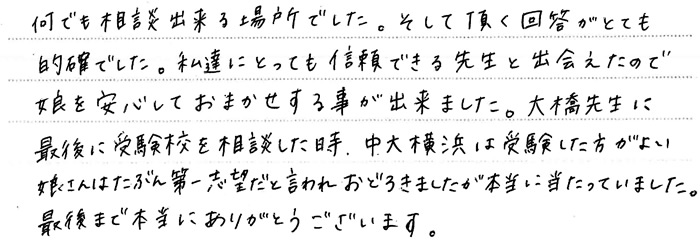 何でも相談出来る場所でした。そして頂く回答がとても
的確でした。私達にとっても信頼できる先生と出会えたので
娘を安心しておまかせする事が出来ました。大橋先生に
最後に受験校を相談した時、中大横浜は受験した方がよい
娘さんはたぶん第一志望だと言われおどろきましたが本当に当たっていました。
最後まで本当にありがとうございます。